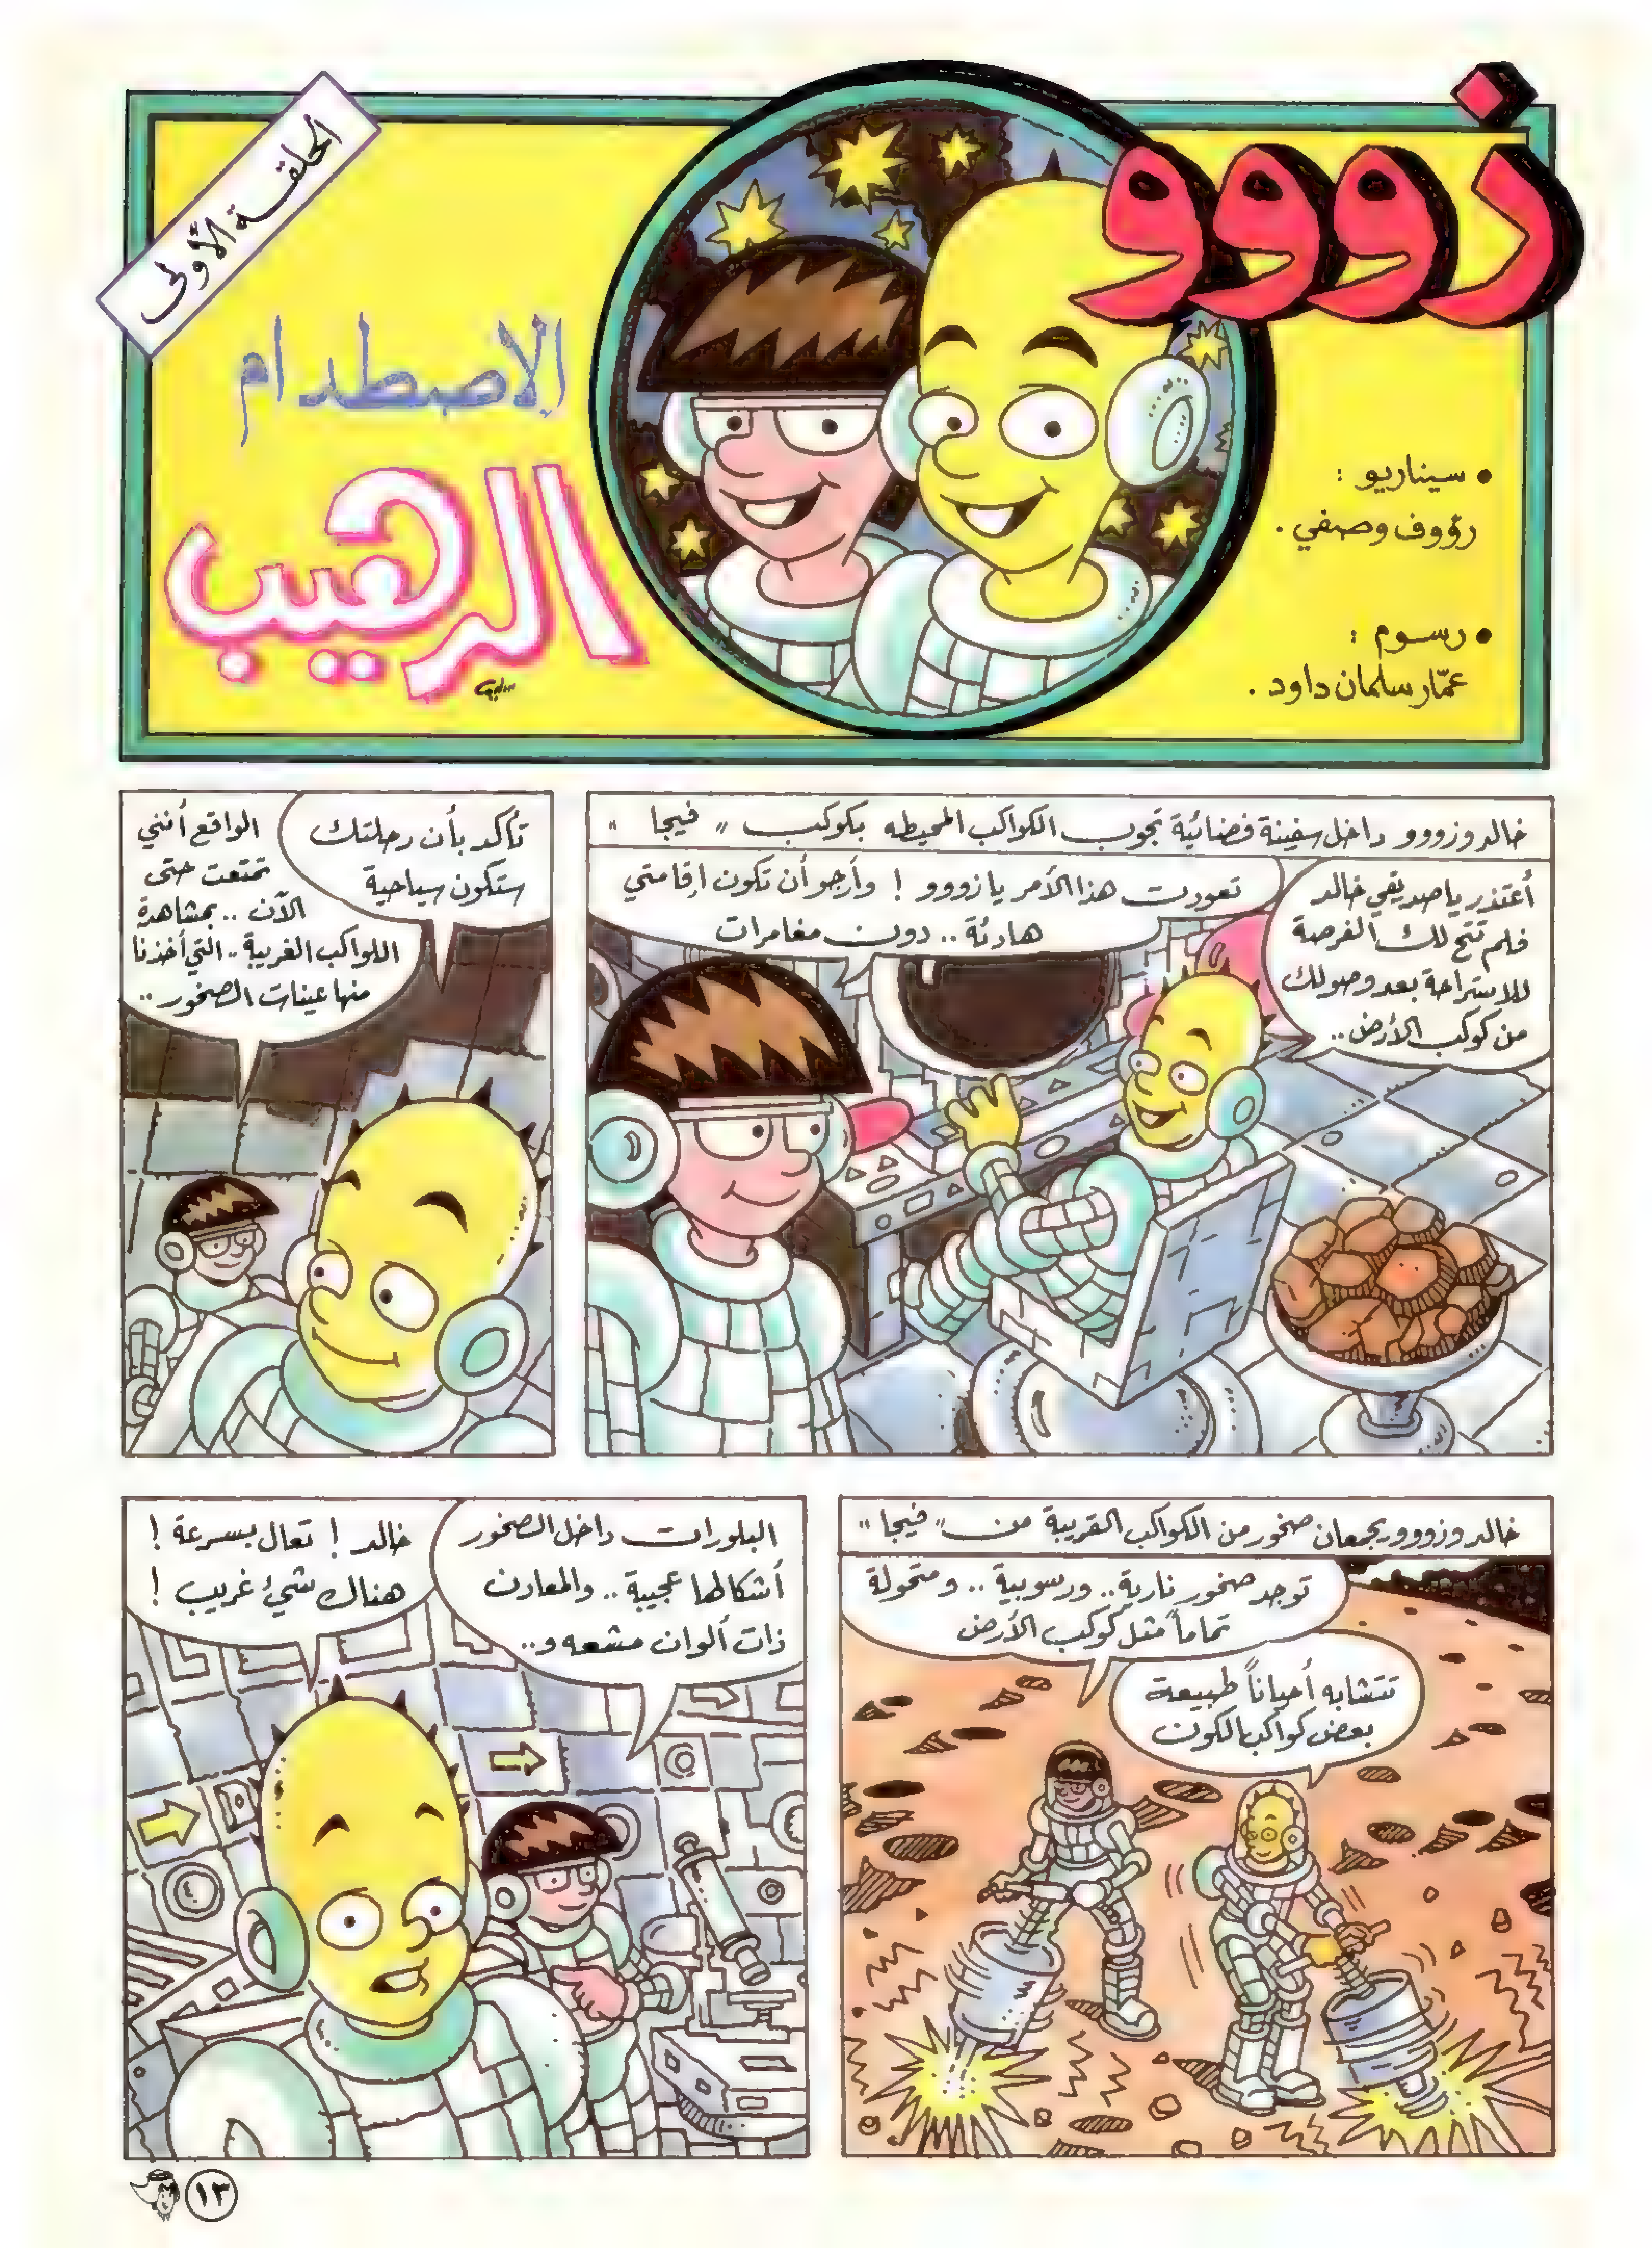 زووو
الحلقة الأولى
الاصطدام
الرهيب
• سيناريو :
رؤوف وصفي .
• رسوم :
عمّار سلمان داود .
خالد وزووو داخل سفينة فضائية تجوب الكواكب المحيطه بكوكب " فيجا "
أعتذر يا صديقي خالد
فلم تتح لك الفرصة
للاستراحة بعد وصولك
من كوكب الأرض..
تعودت هذا الأمر يا زووو ! وأرجو أن تكون إقامتي
هادئة .. دون مغامرات
تأكد بأن رحلتك
ستكون سياحية
الواقع أنني
تمتعت حتى
الآن .. بمشاهدة
الكواكب الغريبة .. التي أخذنا
منها عينات الصخور ..
خالد وزووو يجمعان صخور من الكواكب القريبة من " فيجا "
توجد صخور نارية .. ورسوبية .. ومتحولة
تماماً مثل كوكب الأرض
تتشابه أحياناً طبيعة
بعض كواكب الكون
البلورات داخل الصخور
أشكالها عجيبة .. والمعادن
ذات ألوان مشعه و..
خالد ! تعال بسرعة !
هناك شيئ غريب !
١٣